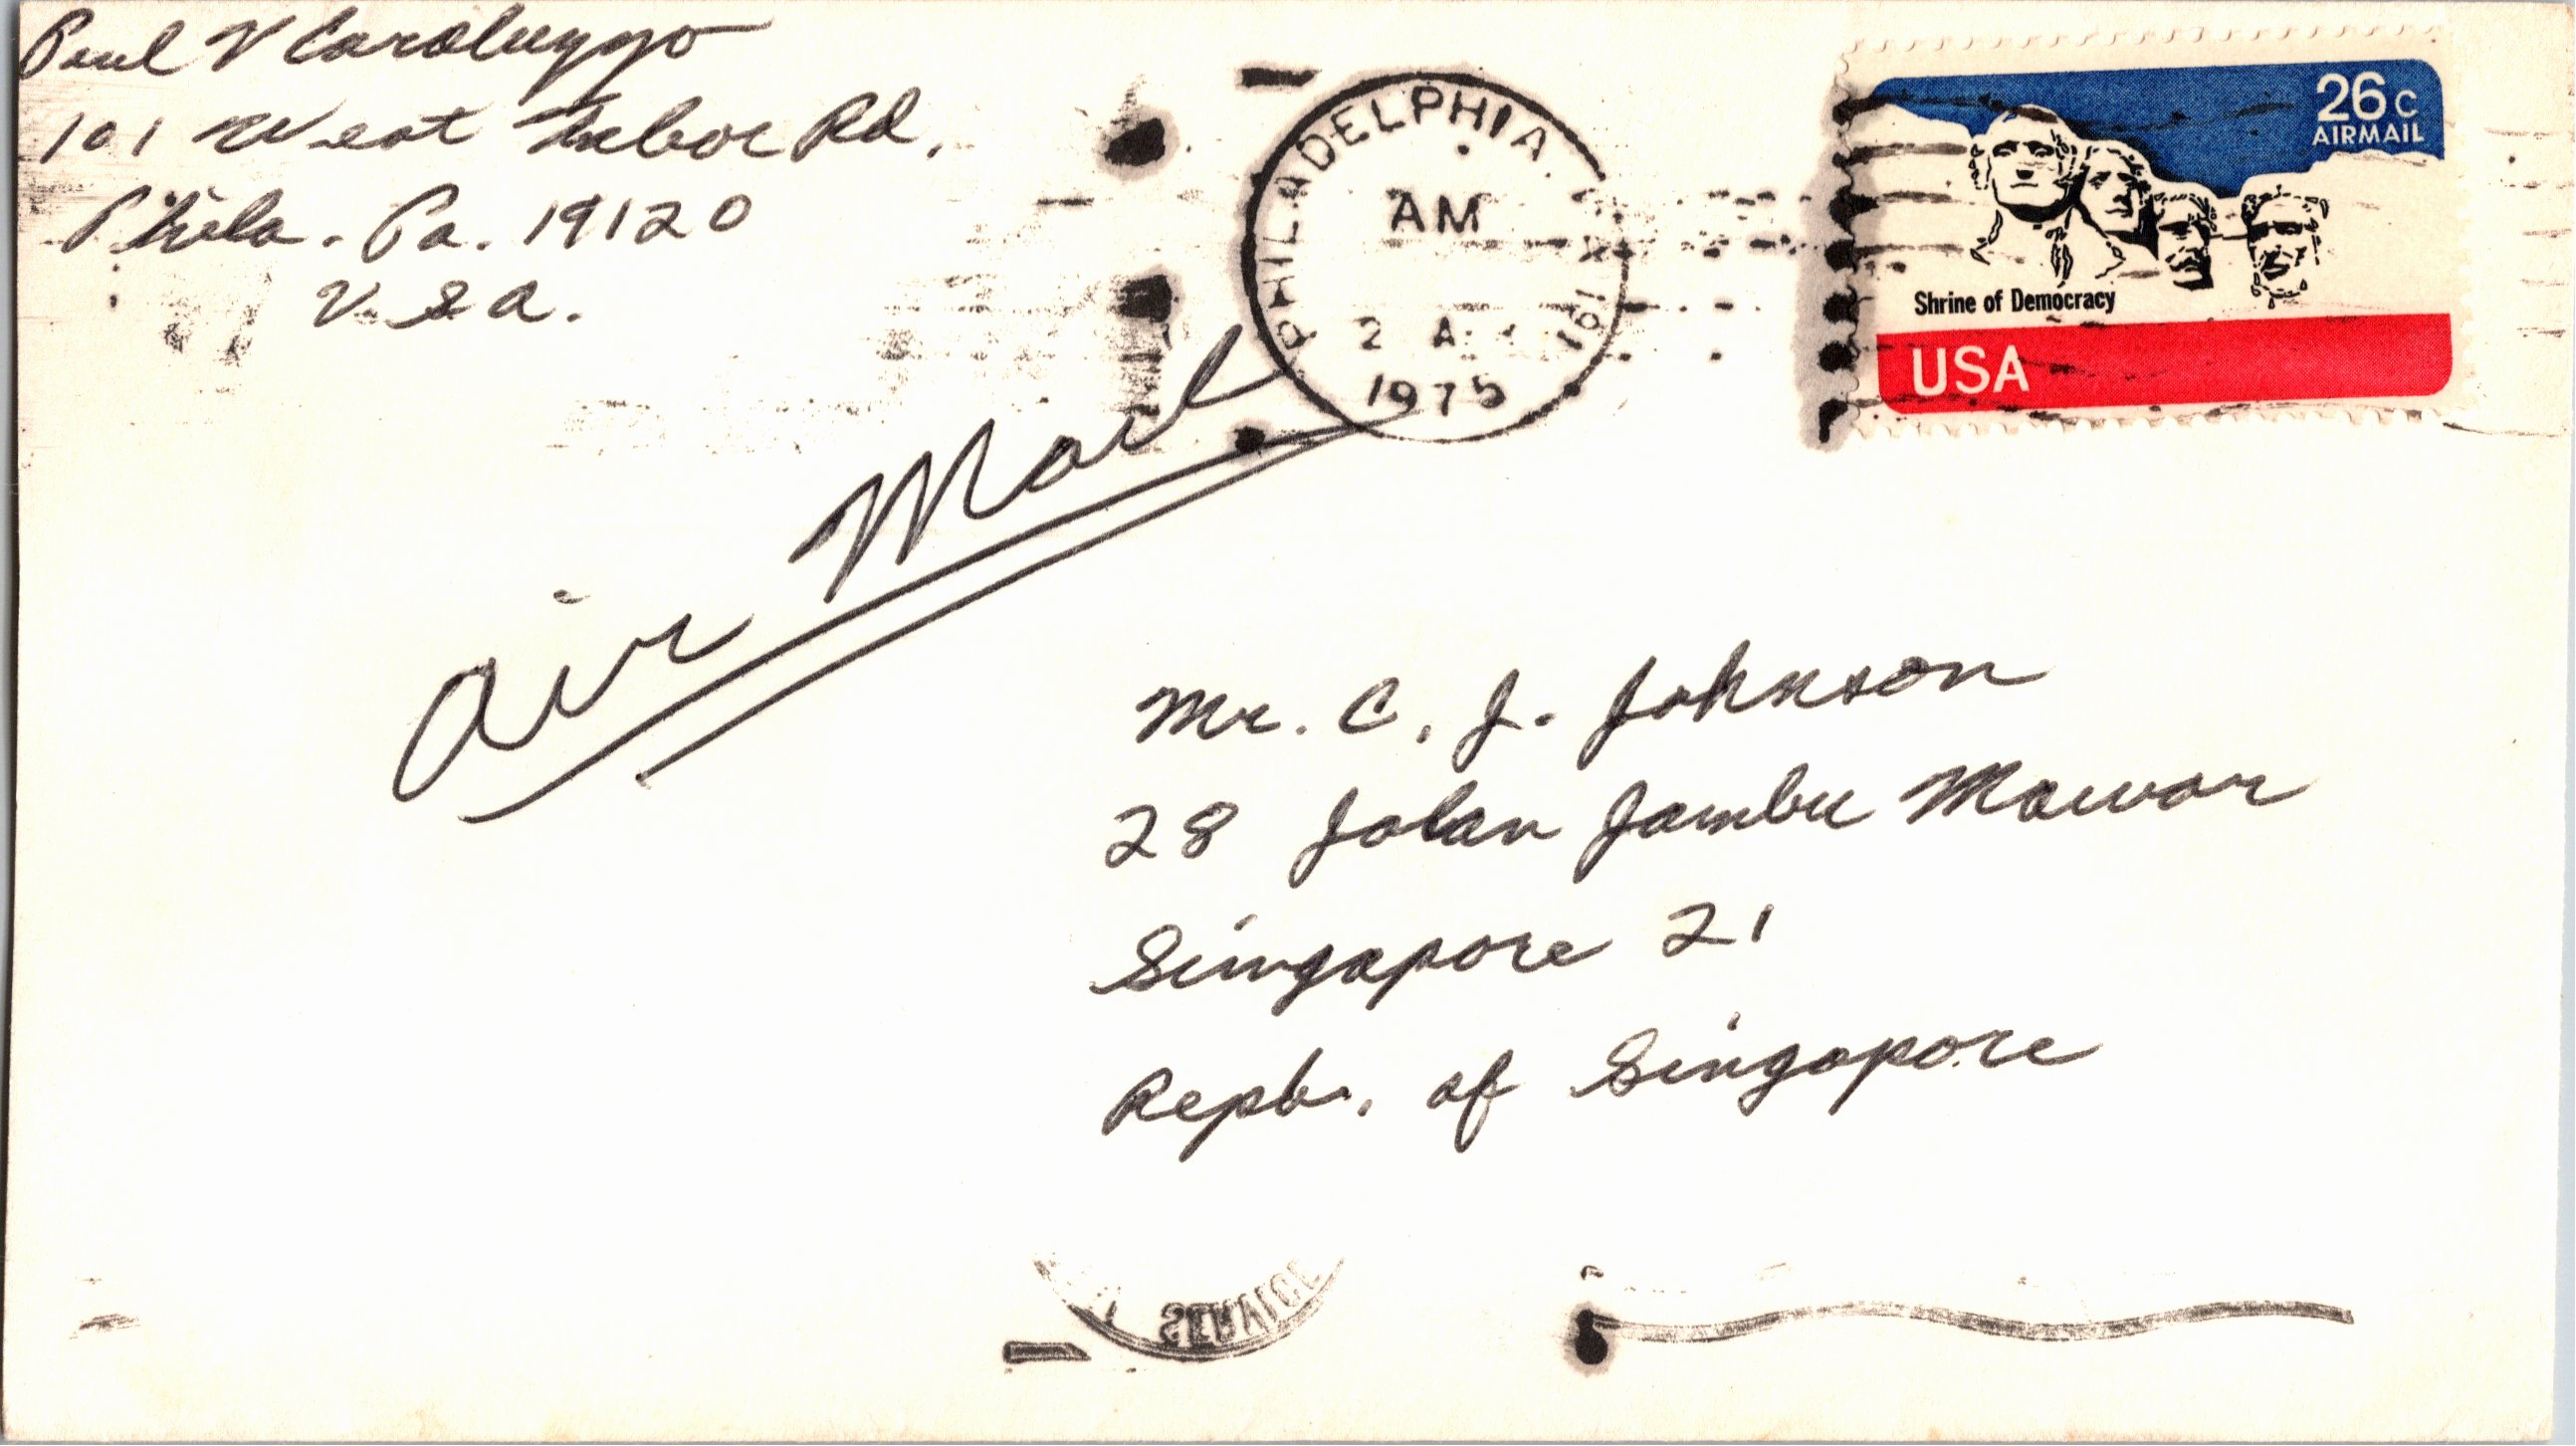 Paul V Caroluzzo
101 West Tabor Rd.
Phila. Pa. 19120
U.S.A.
PHILADELPHIA
AM
2
1975
26c
AIRMAIL
Shrine of Democracy
USA
Air Mail
Mr. C. J. Johnson
28 Jalan Jambu Mawar
Singapore 21
Repb. of Singapore